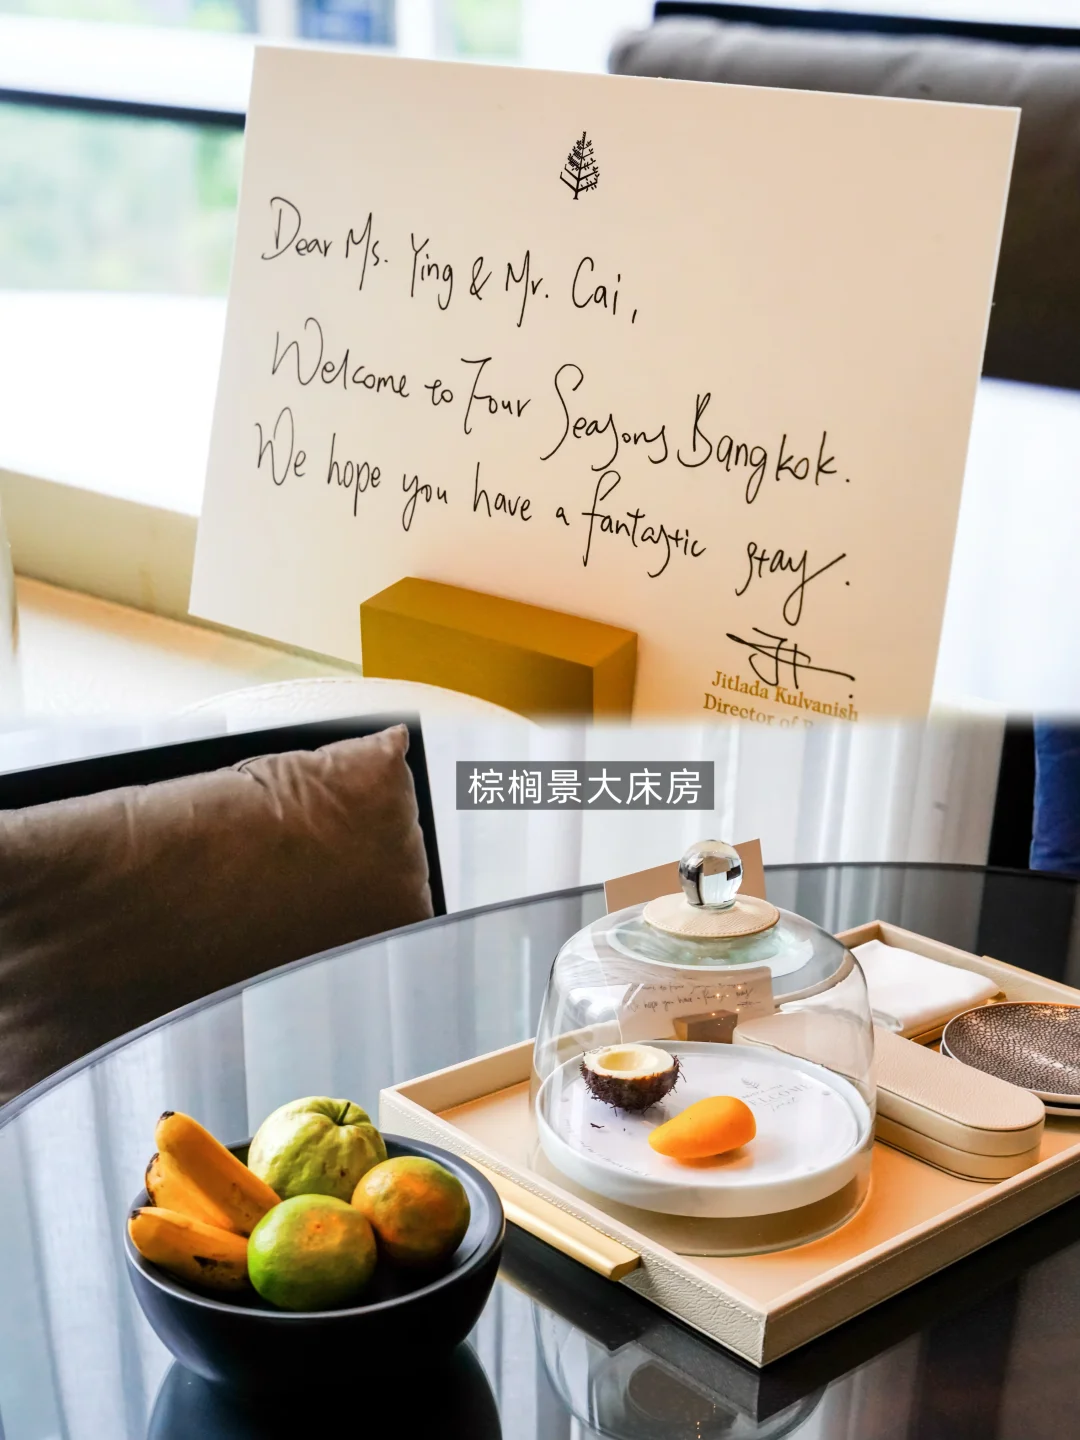 Dear Ms. Ying & Mr. Cai,
Welcome to Four Seasons Bangkok.
We hope you have a fantastic stay.
Jitlada Kulvanish
Director of
棕榈景大床房